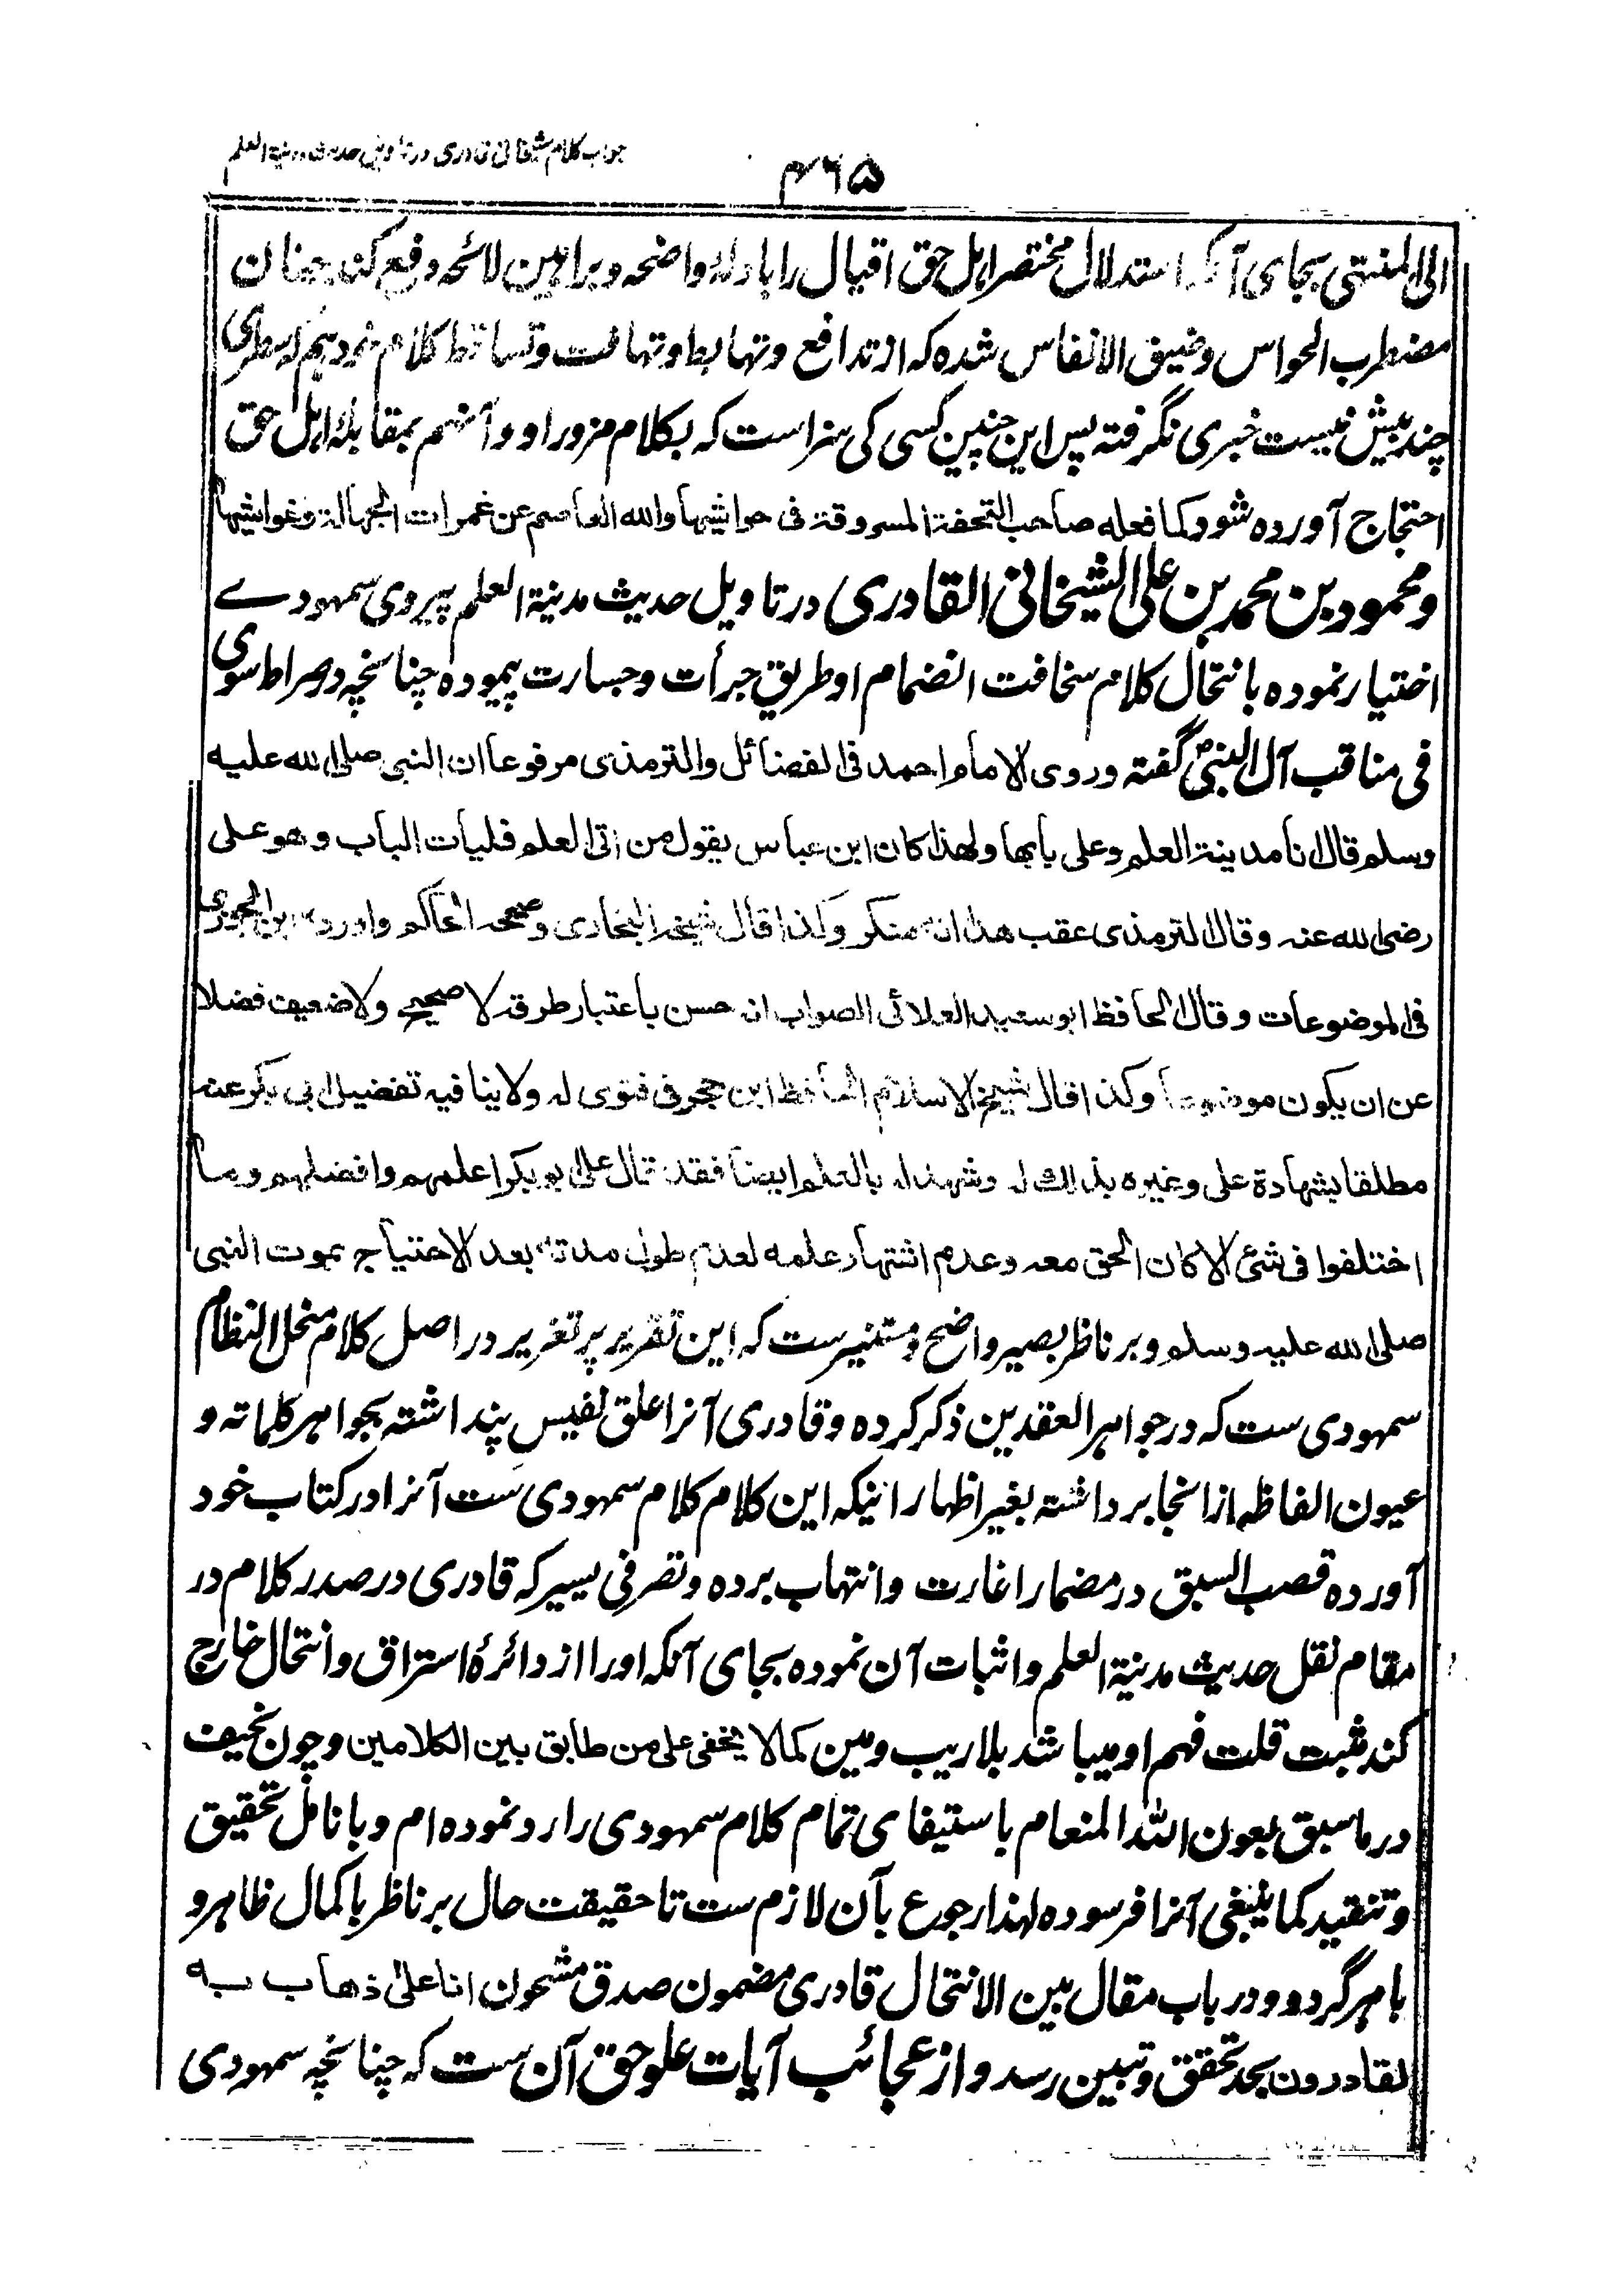 جواب کلام شیخانی قادری در تاویل حدیث مدینة العلم
۴۶۵
الی المنتهی بجای آنکه استدلال مختصر اهل حق اقبال را بادلهٔ واضحه و براهین لائحه دفع کند چنان
مضطرب الحواس و ضیق الانفاس شده که از تدافع و تهابط و تهافت و تساقط کلام خود هم که سطری
چند بیش نیست خبری نگرفته پس این چنین کسی کی سزاست که بکلام مزور او و آنهم بمقابلهٔ اهل حق
احتجاج آورده شود کما فعله صاحب التحفة المسروقة فی حواشیها والله العاصم عن غمرات الجهالة وغواشیها
و محمود بن محمد بن علی الشیخانی القادری در تاویل حدیث مدینة العلم پیروی سمهودے
اختیار نموده بانتحال کلام سخافت انضمام او طریق جرأت و جسارت پیموده چنانچه در صراط سوی
فی مناقب آل النبیؐ گفته وروی الامام احمد فی الفضائل والترمذی مرفوعا ان النبی صلی الله علیه
وسلم قال انا مدینة العلم وعلی بابها ولهذا کان ابن عباس یقول من اتی العلم فلیأت الباب وهو علی
رضی الله عنه وقال الترمذی عقب هذا انه منکر وکذا قال شیخه البخاری وصححه الحاکم واورده ابن الجوزی
فی الموضوعات وقال الحافظ ابو سعید العلائی الصواب انه حسن باعتبار طرقه لا صحیح ولا ضعیف فضلا
عن ان یکون موضوعا وکذا قال شیخ الاسلام الحافظ ابن حجر فی فتوی له ولا ینافیه تفضیل ابی بکر عنه
مطلقا بشهادة علی وغیره بذلك له وشهد له بالعلم ایضا فقد قال علی ابو بکر اعلمهم وافضلهم وما
اختلفوا فی شئ الا کان الحق معه وعدم اشتهار علمه لعدم طول مدته بعد الاحتیاج بموت النبی
صلی الله علیه وسلم و بر ناظر بصیر واضح و مستنیرست که این تقریر پر تغریر در اصل کلام منحل النظام
سمهودی ست که در جواهر العقدین ذکر کرده و قادری آنرا علق نفیس پنداشته بجواهر کلماته و
عیون الفاظه ازانجا برداشته بغیر اظهار اینکه این کلام کلام سمهودی ست آنرا در کتاب خود
آورده قصب السبق در مضمار اغارت و انتهاب برده و تصرفی یسیر که قادری در صدر کلام در
مقام نقل حدیث مدینة العلم و اثبات آن نموده بجای آنکه او را از دائرهٔ استراق و انتحال خارج
کند مثبت قلت فهم او میباشد بلا ریب و مین کما لا یخفی علی من طابق بین الکلامین و چون نحیف
در ما سبق بعون الله المنعام باستیفای تمام کلام سمهودی را رد نموده ام و بانامل تحقیق
و تنقید کما ینبغی آنرا فرسوده لهذا رجوع بآن لازم ست تا حقیقت حال بر ناظر باکمال ظاهر و
باهر گردد و در باب مقال بین الانتحال قادری مضمون صدق مشحون انا علی ذهاب به
لقادرون بحد تحقق و تبین رسد و از عجائب آیات علو حق آن ست که چنانچه سمهودی